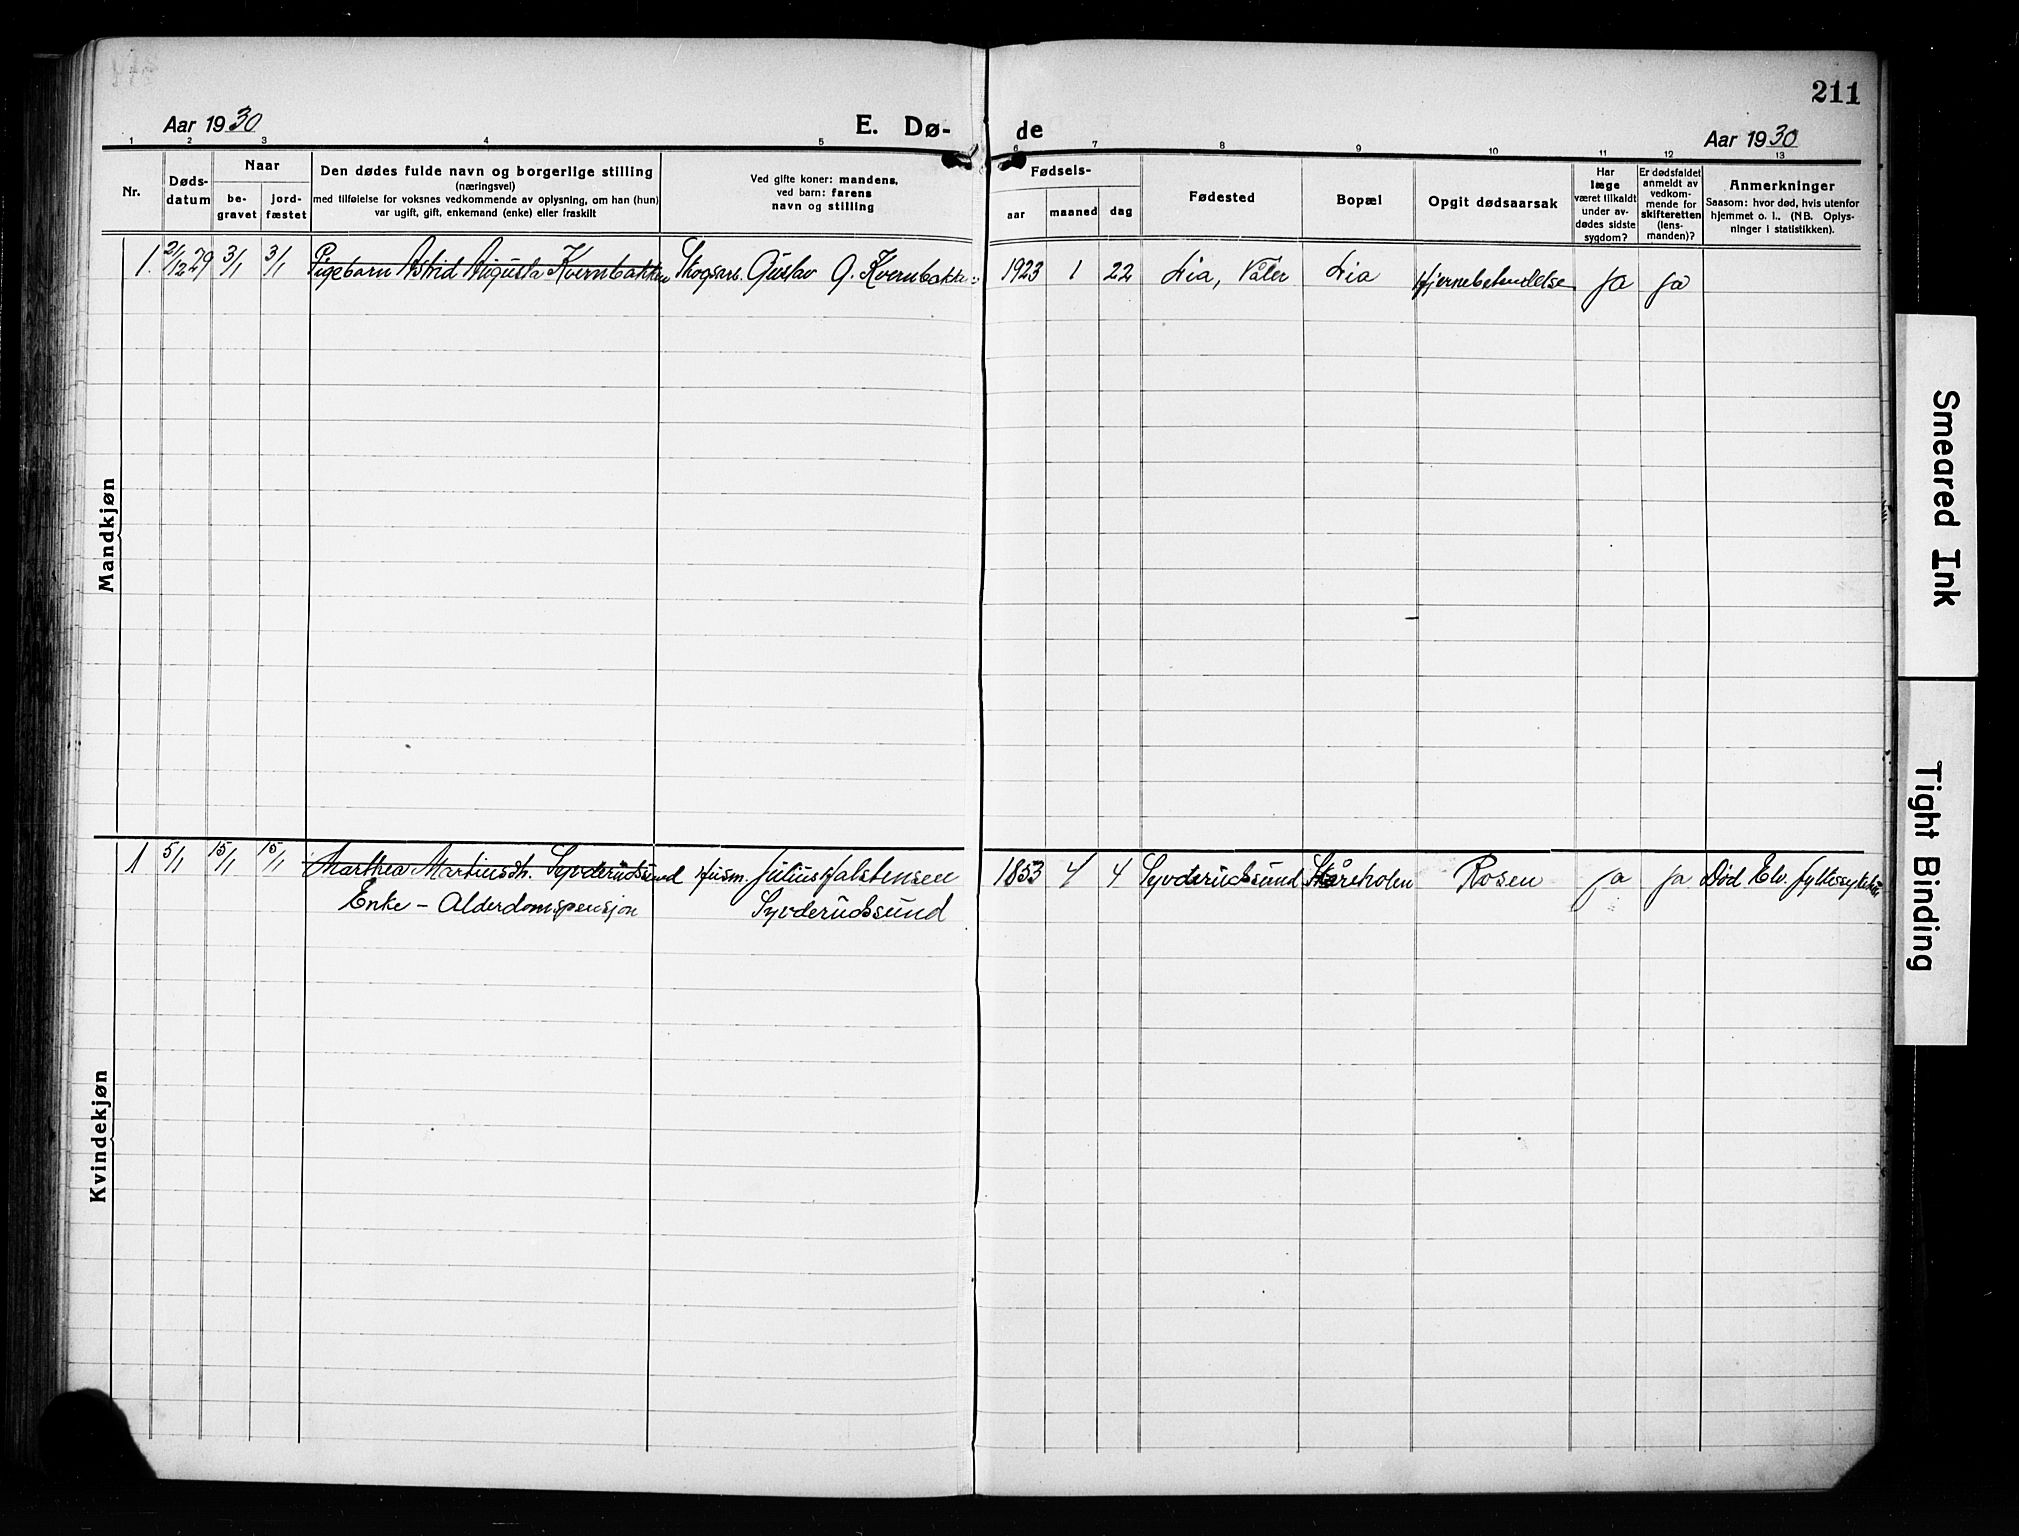 211
Aar 1930
E. Dø-
de
Aar 1930
1 2 3 4 5 6 7 8 9 10 11 12 13
Nr.
Døds-
datum
Naar
be-
gravet
jord-
fæstet
Den dødes fulde navn og borgerlige stilling
(næringsvei)
med tilføielse for voksnes vedkommende av oplysning, om han (hun)
var ugift, gift, enkemand (enke) eller fraskilt
Ved gifte koner: mandens,
ved barn: farens
navn og stilling
Fødsels-
aar
maaned
dag
Fødested
Bopæl
Opgit dødsaarsak
Har
læge
været tilkaldt
under av-
dødes sidste
sygdom?
Er dødsfaldet
anmeldt av
vedkom-
mende for
skifteretten
(lens-
manden)?
Anmerkninger
Saasom: hvor død, hvis utenfor
hjemmet o. l.. (NB. Oplys-
ninger i statistikken).
Mandkjøn
1. 21/12 29 3/1 3/1 Pigebarn Astrid Augusta Kvernbakken Skogsarb. Gustav O. Kvernbakken 1923 1 22 Lia, Våler Lia Hjernebetendelse Ja Ja
Kvindekjøn
1 5/1 15/1 15/1 Marthea Martinusdt. Syvderudsund Husm. Julius Halstensen 1853 4 4 Syvderudsund Skåreholen Rosen ja ja Død Elv. fylkessykehus
Enke - Alderdomspensjon Syvderudssund
Smeared Ink
Tight Binding